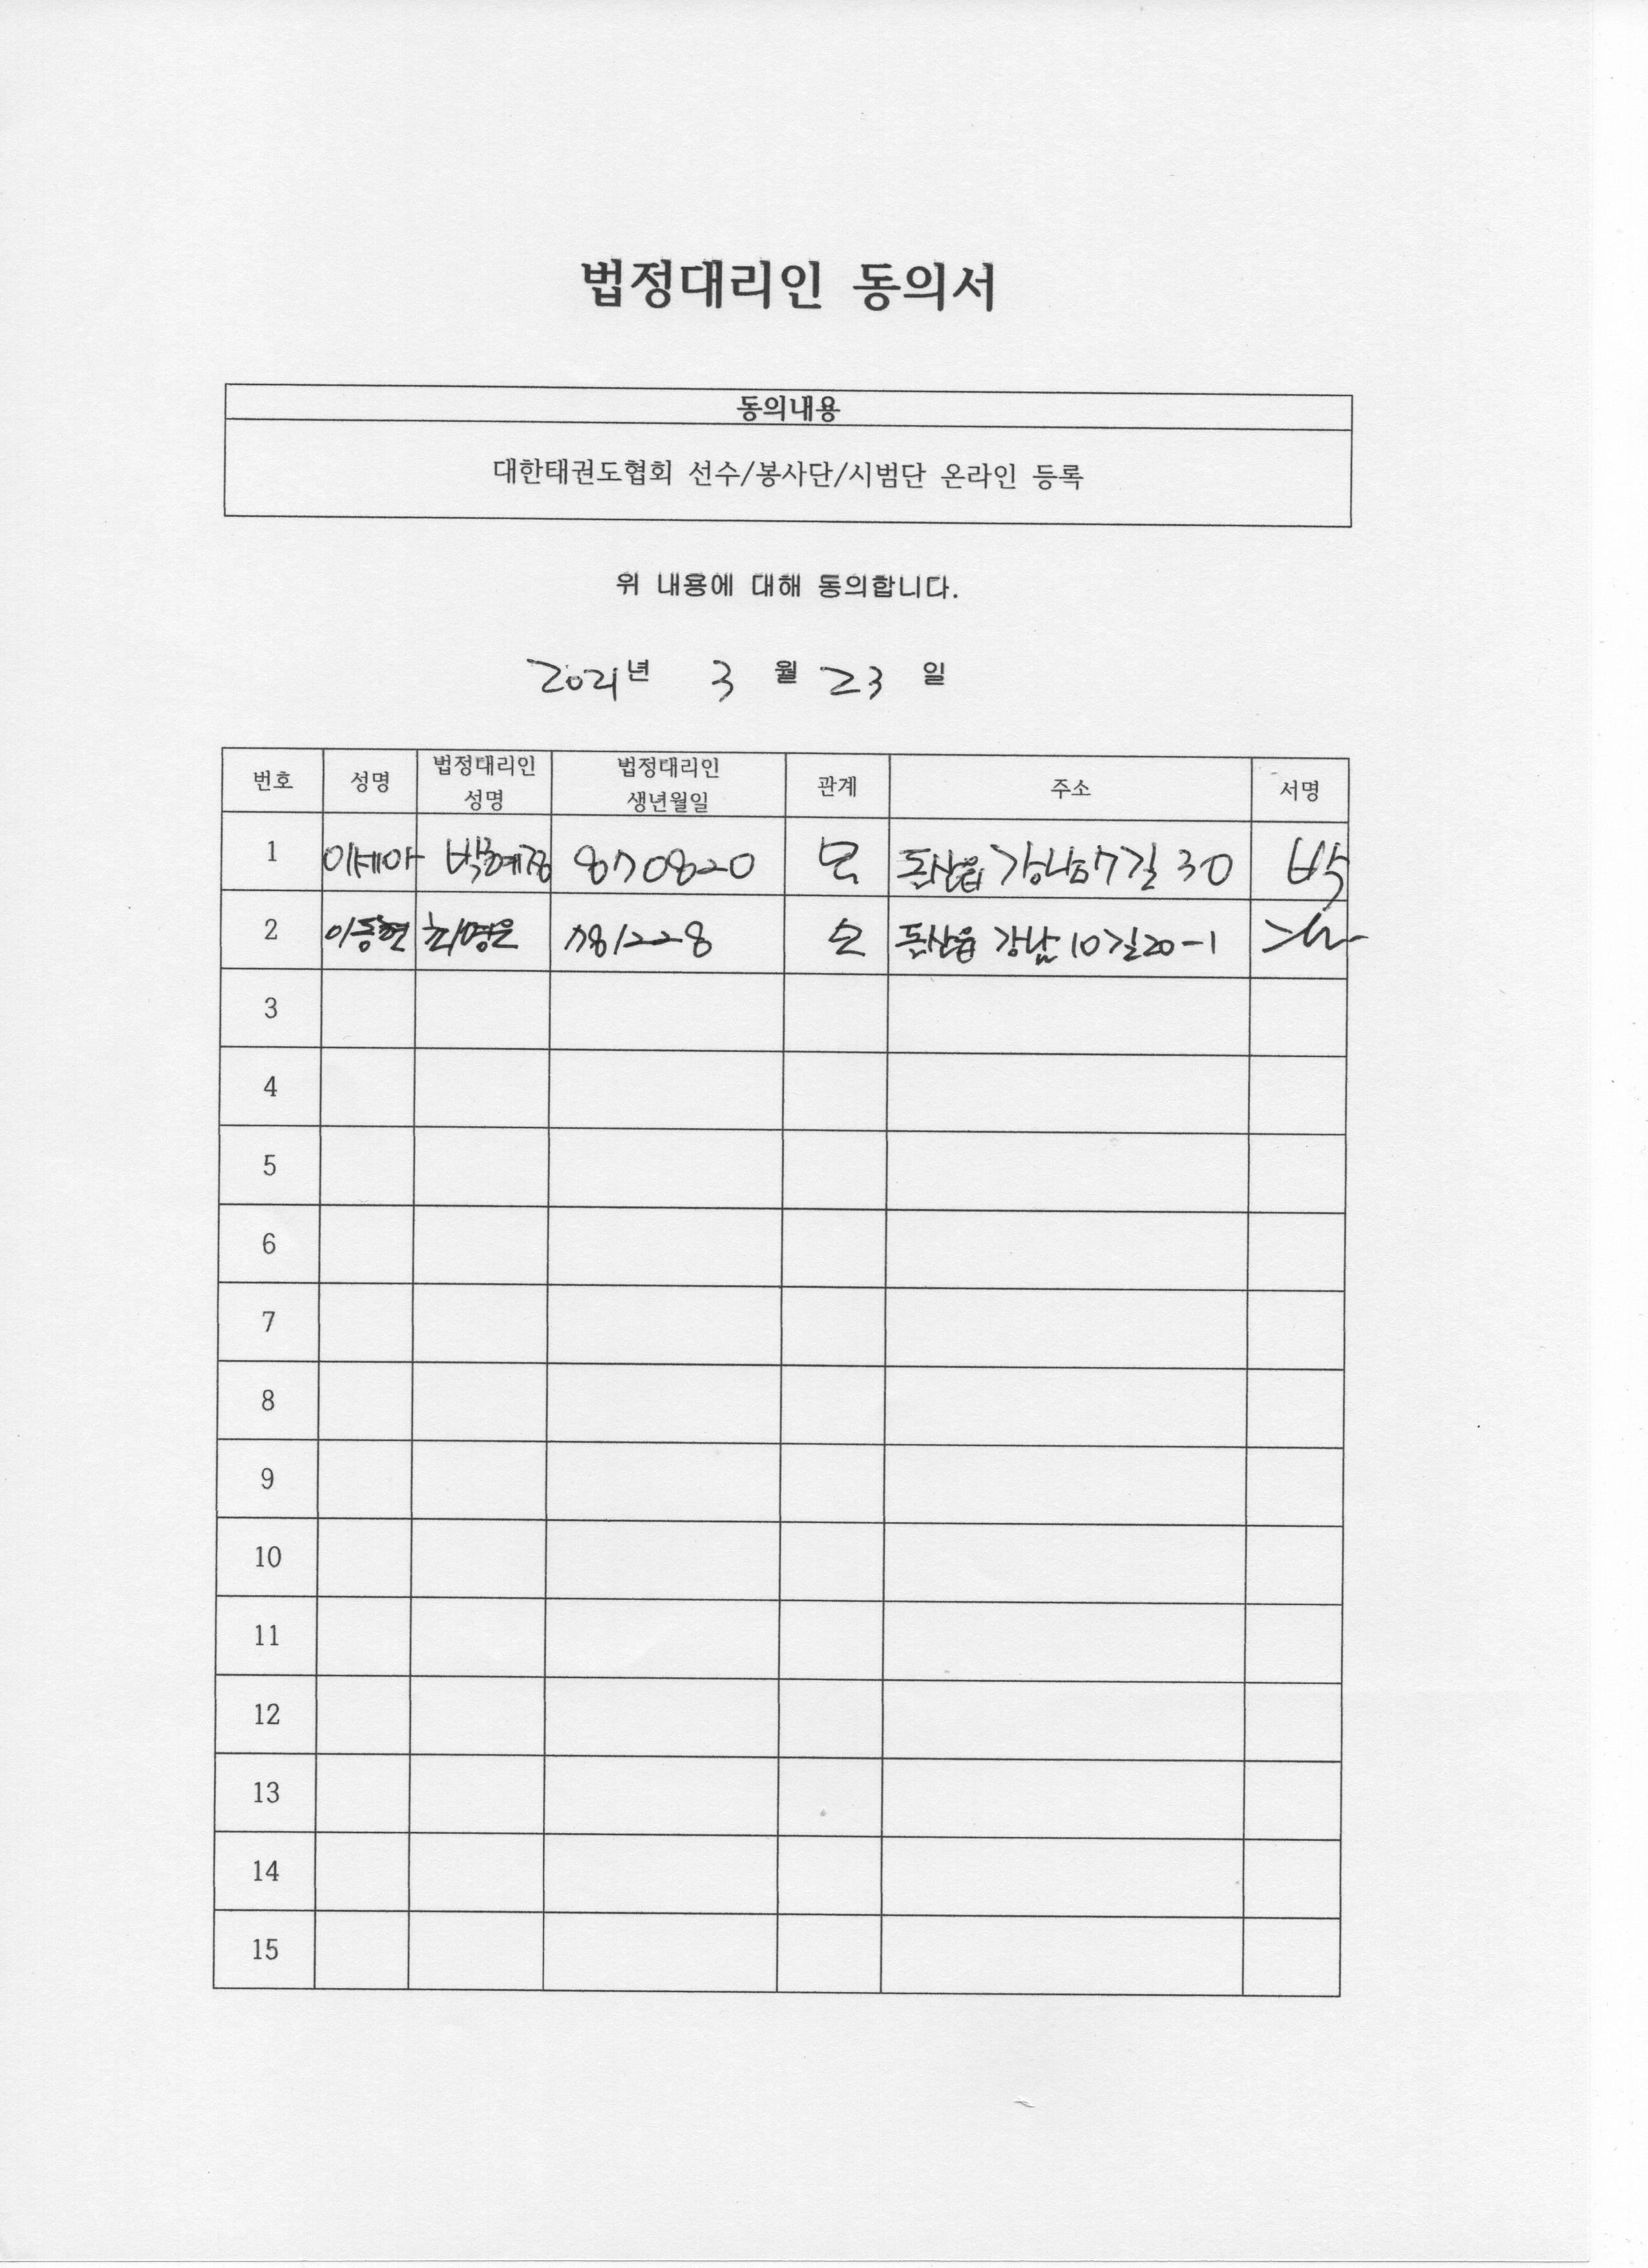 법정대리인 동의서
동의내용
대한태권도협회 선수/봉사단/시범단 온라인 등록
위 내용에 대해 동의합니다.
2021년 3월 23일
번호 성명 법정대리인 성명 법정대리인 생년월일 관계 주소 서명
1 이세아 박혜정 870820 모 돌산읍 강남7길 30 박
2 이동현 최명은 781228 모 돌산읍 강남10길 20-1
3
4
5
6
7
8
9
10
11
12
13
14
15